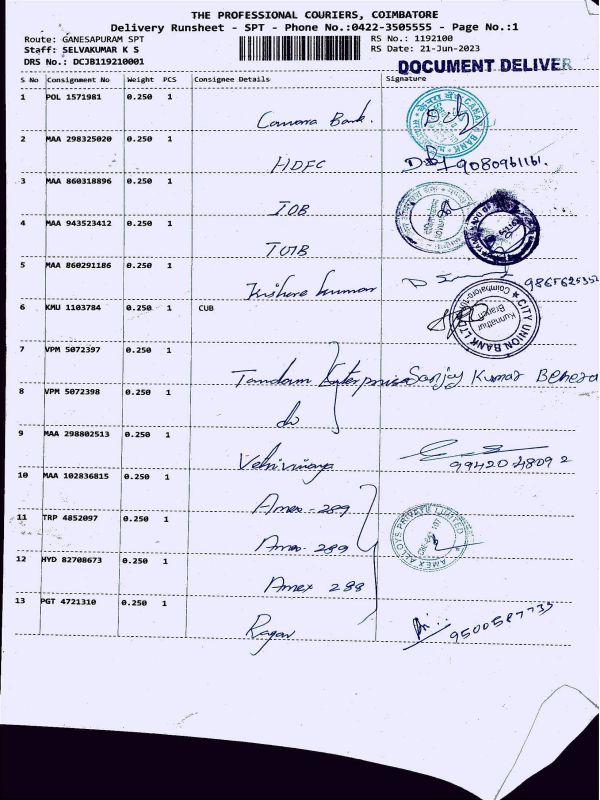 THE PROFESSIONAL COURIERS, COIMBATORE
Delivery Runsheet - SPT - Phone No.:0422-3505555 - Page No.:1
Route: GANESAPURAM SPT RS No.: 1192100
Staff: SELVAKUMAR K S RS Date: 21-Jun-2023
DRS No.: DCJB119210001 DOCUMENT DELIVER
S No Consignment No Weight PCS Consignee Details Signature
1 POL 1571981 0.250 1 Canara Bank. CANARA BANK
2 MAA 298325020 0.250 1 HDFC 9080961161.
3 MAA 860318896 0.250 1 IOB
4 MAA 943523412 0.250 1
5 MAA 860291186 0.250 1 Kishore kumar
6 KMU 1103784 0.250 1 CUB CITY UNION BANK LTD Kunnathur Branch Coimbatore
7 VPM 5072397 0.250 1 Enterprises Sanjay Kumar Behera
8 VPM 5072398 0.250 1 do
9 MAA 298802513 0.250 1 99420 48092
10 MAA 102836815 0.250 1 Amex - 289
11 TRP 4852097 0.250 1 Amex - 289 AMEX ALLOYS PRIVATE LIMITED
12 HYD 82708673 0.250 1 Amex 288
13 PGT 4721310 0.250 1 Ragav 9500587735